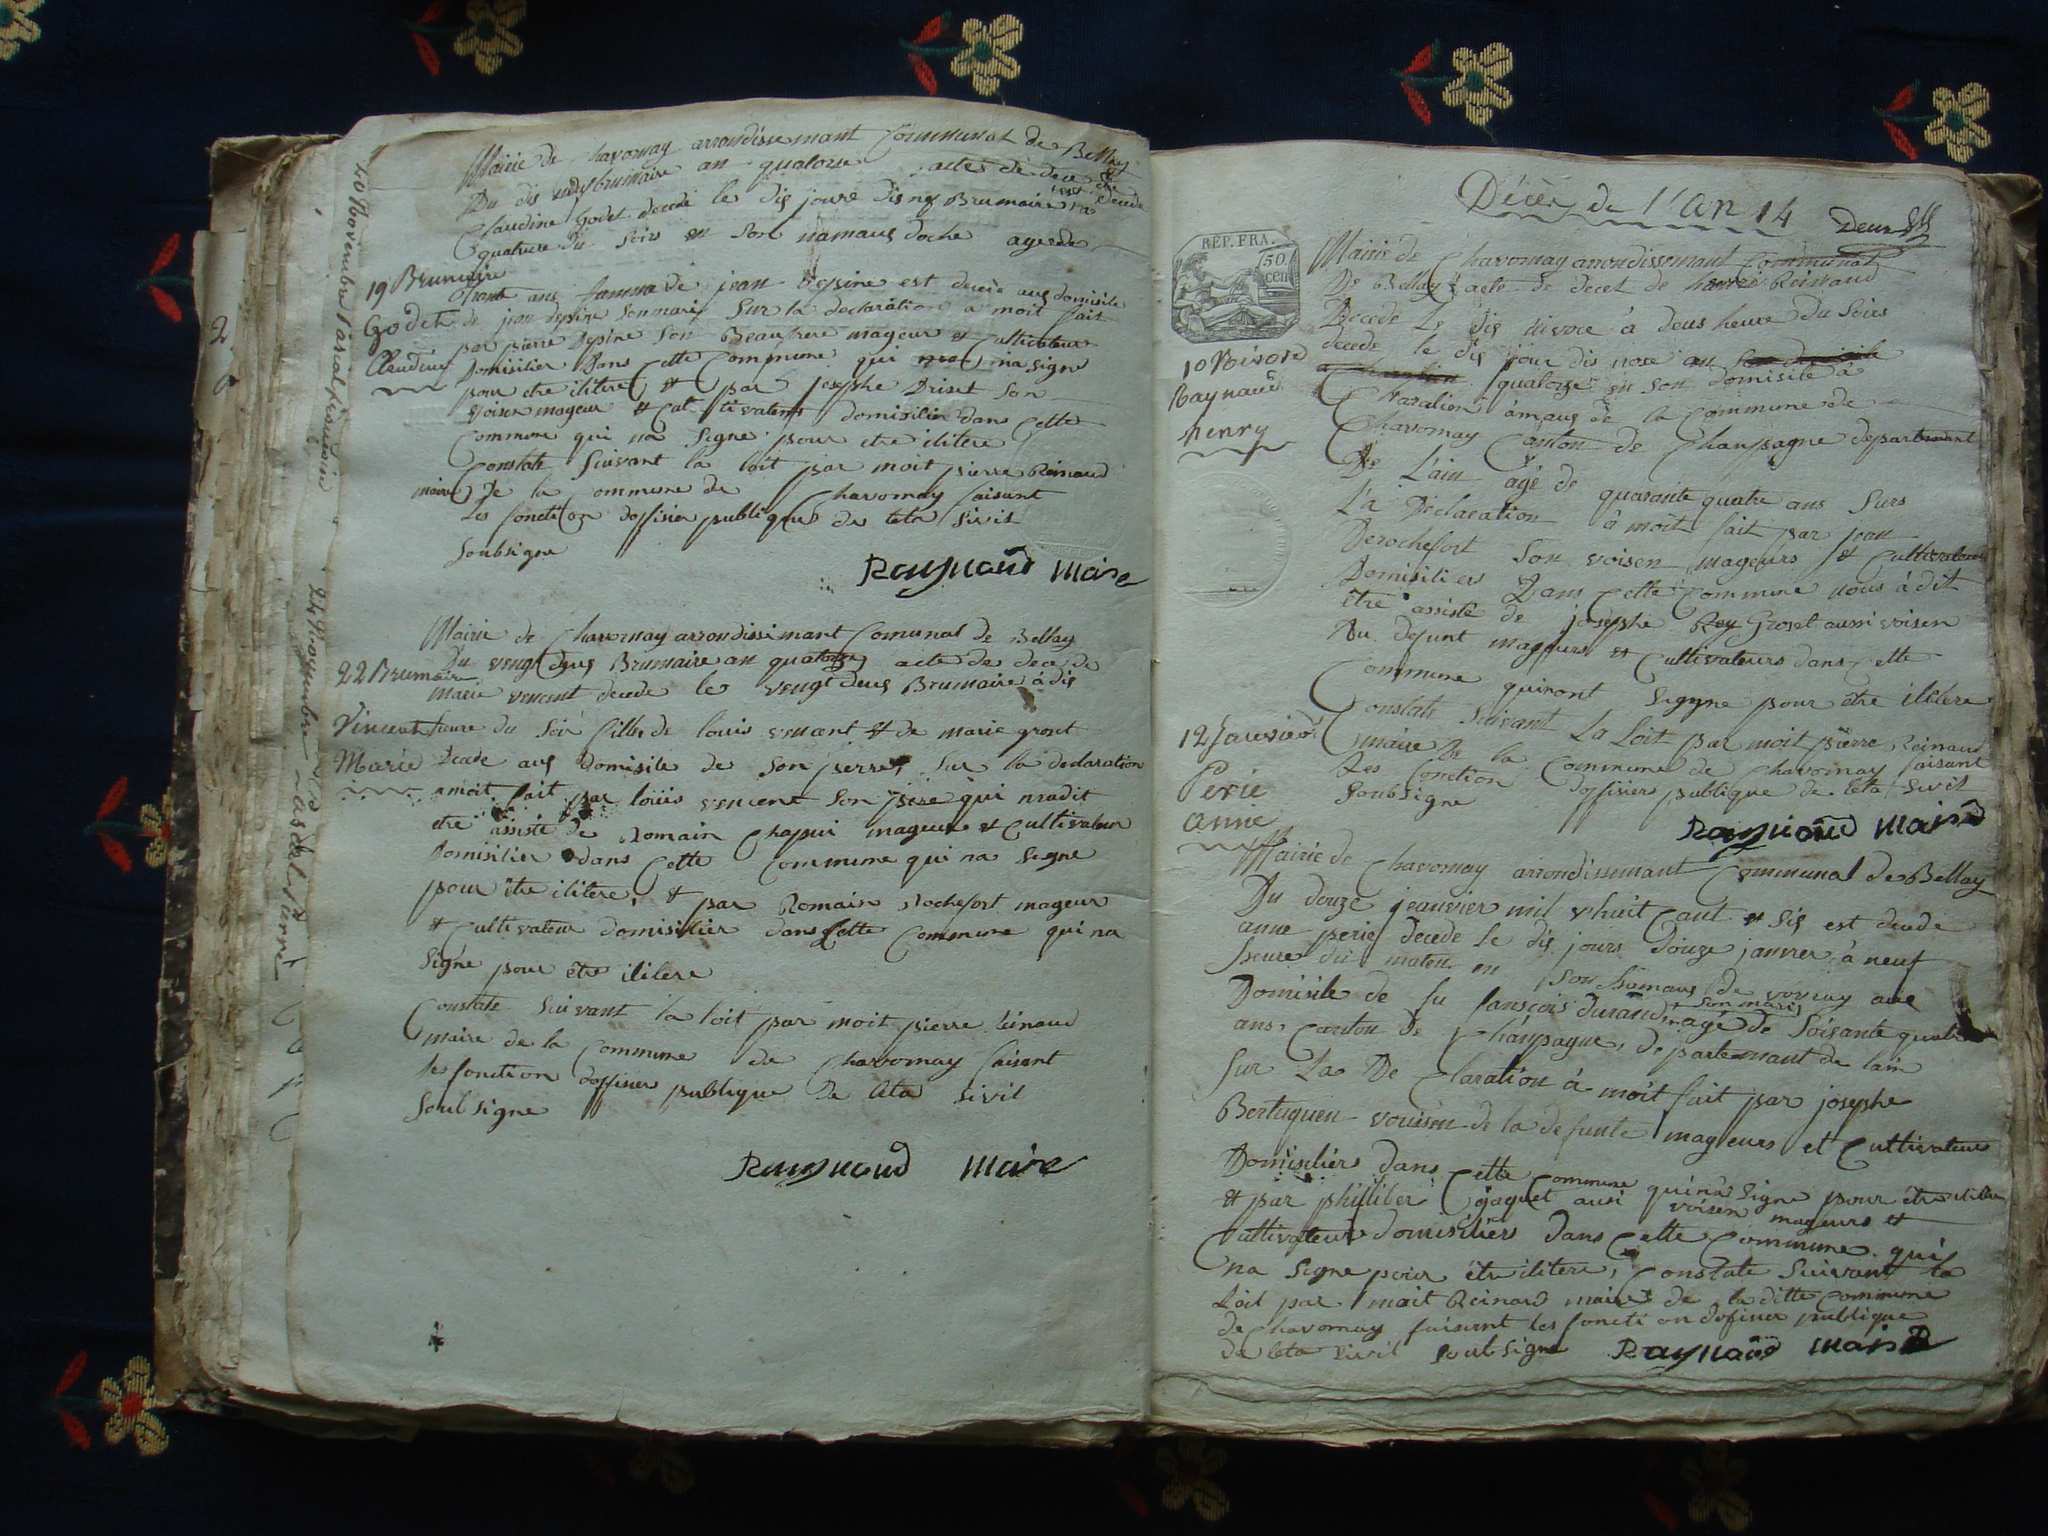 Mairie de Chavornay arrondissemant Communal de Bellay
Du dis neuf brumaire an quatorze acte de dece de
Claudine Godet decede le dis jours dis neuf Brumaire
quatreure du soirs en son hamaug doche agee de
19 Brumaire
ans famme de jean depsine est decede aug domisile
Godet
de jean depsine son mari sur la declaration a moit fait
Claudine
par pierre depsine son Beaufrere mageur et Cultivateur
Domisilier Dans Cette Commune qui na signe
pour etre ilitere et par josephe Driset son
voisen mageur et Cultivateurs domisilier dans Cette
Commune qui na signe pour etre ilitere
Constate Suivant la loit par moit pierre Reinaud
maire De la Commune de Chavornay faisant
Les fonction doffisier publique de leta Sivil
Soubsigne
Raynaud Maire
Mairie de Chavornay arrondissimant Comunal de Bellay
Du vengt deus Brumaire an quatorze acte de dece de
22 Brumaire
marie vencent decede le vengt deus Brumaire à dis
Vincent
heure du Soir fille de louis vencent et de marie groset
Marie
Decede aug domisile de Son perre, Sur la declaration
amoit fait par loüis vencent Son pere qui madit
etre assiste de Romain Chapui mageur et Cultivateur
Domisilier dans Cette Commune qui na Signe
pour être ilitere, et par Romain Rochefort mageur
et Cultivateur domisilier dans Cette Commune qui na
Signe pour être ilitere
Constate Suivant la loit par moit pierre Reinaud
maire de la Commune de Chavornay faisant
les fonction doffisier publique de leta Sivil
Soubsigne
Raynaud Maire
Décès de l'an 14
REP. FRA.
750.
cen
Mairie de Chavornay arrondissemant Communal
De Bellay acte de deces de Reinaud
Decede Le dis nivose à deus heure du Soirs
decede le dis jour dis nose an
quatorze en son domisile à
10 Nivose
Raynaud
henry
Charaillen amaug de la Commune de
Chavornay Canton de Champagne departemant
De Lain agé de quarante quatre ans Surs
La Declaration à moit fait par jean
Derochefort Son voisen mageurs et Cultivateur
Domisilier Dans Cette Commune nous à dit
être assiste de josephe Rey Groset aussi voisen
Du defunt mageurs et Cultivateurs dans Cette
Commune quinont Signe pour être ilitere
Constate Suivant La Loit par moit pierre Reinaud
12 Janvier
maire De la Commune de Chavornay faisant
Les fonction doffisier publique de leta Sivil
Perie
Soubsigne
anne
Raynaud Maire
Mairie de Chavornay arrondissemant Communal de Bellay
Du douze jeanvier mil vhuit Cant et sis est decede
anne perie decede le dis jours douze janvier à neuf
heure du maten en son hamaug de vovray aue
Domisile de fu fansçois durand son mari agé de Soisante quatre
ans, Canton de Champagne, departemant de lain
Sur La Declaration à moit fait par josephe
Bertuguen vouisen de la defunte mageurs et Cultivateurs
Domisiliers dans Cette Commune quina Signe pour être ilitere
et par philliber Gojaquet ausi voisen mageurs et
Cultivateur domisiliers Dans Cette Commune qui
na Signe pour être ilitere, Constate Suivant la
Loit par moit Reinard maire de la ditte Commune
de Chavornay faisent les fonction doffisier publique
de leta Sivil Soubsigne Raynaud Maire